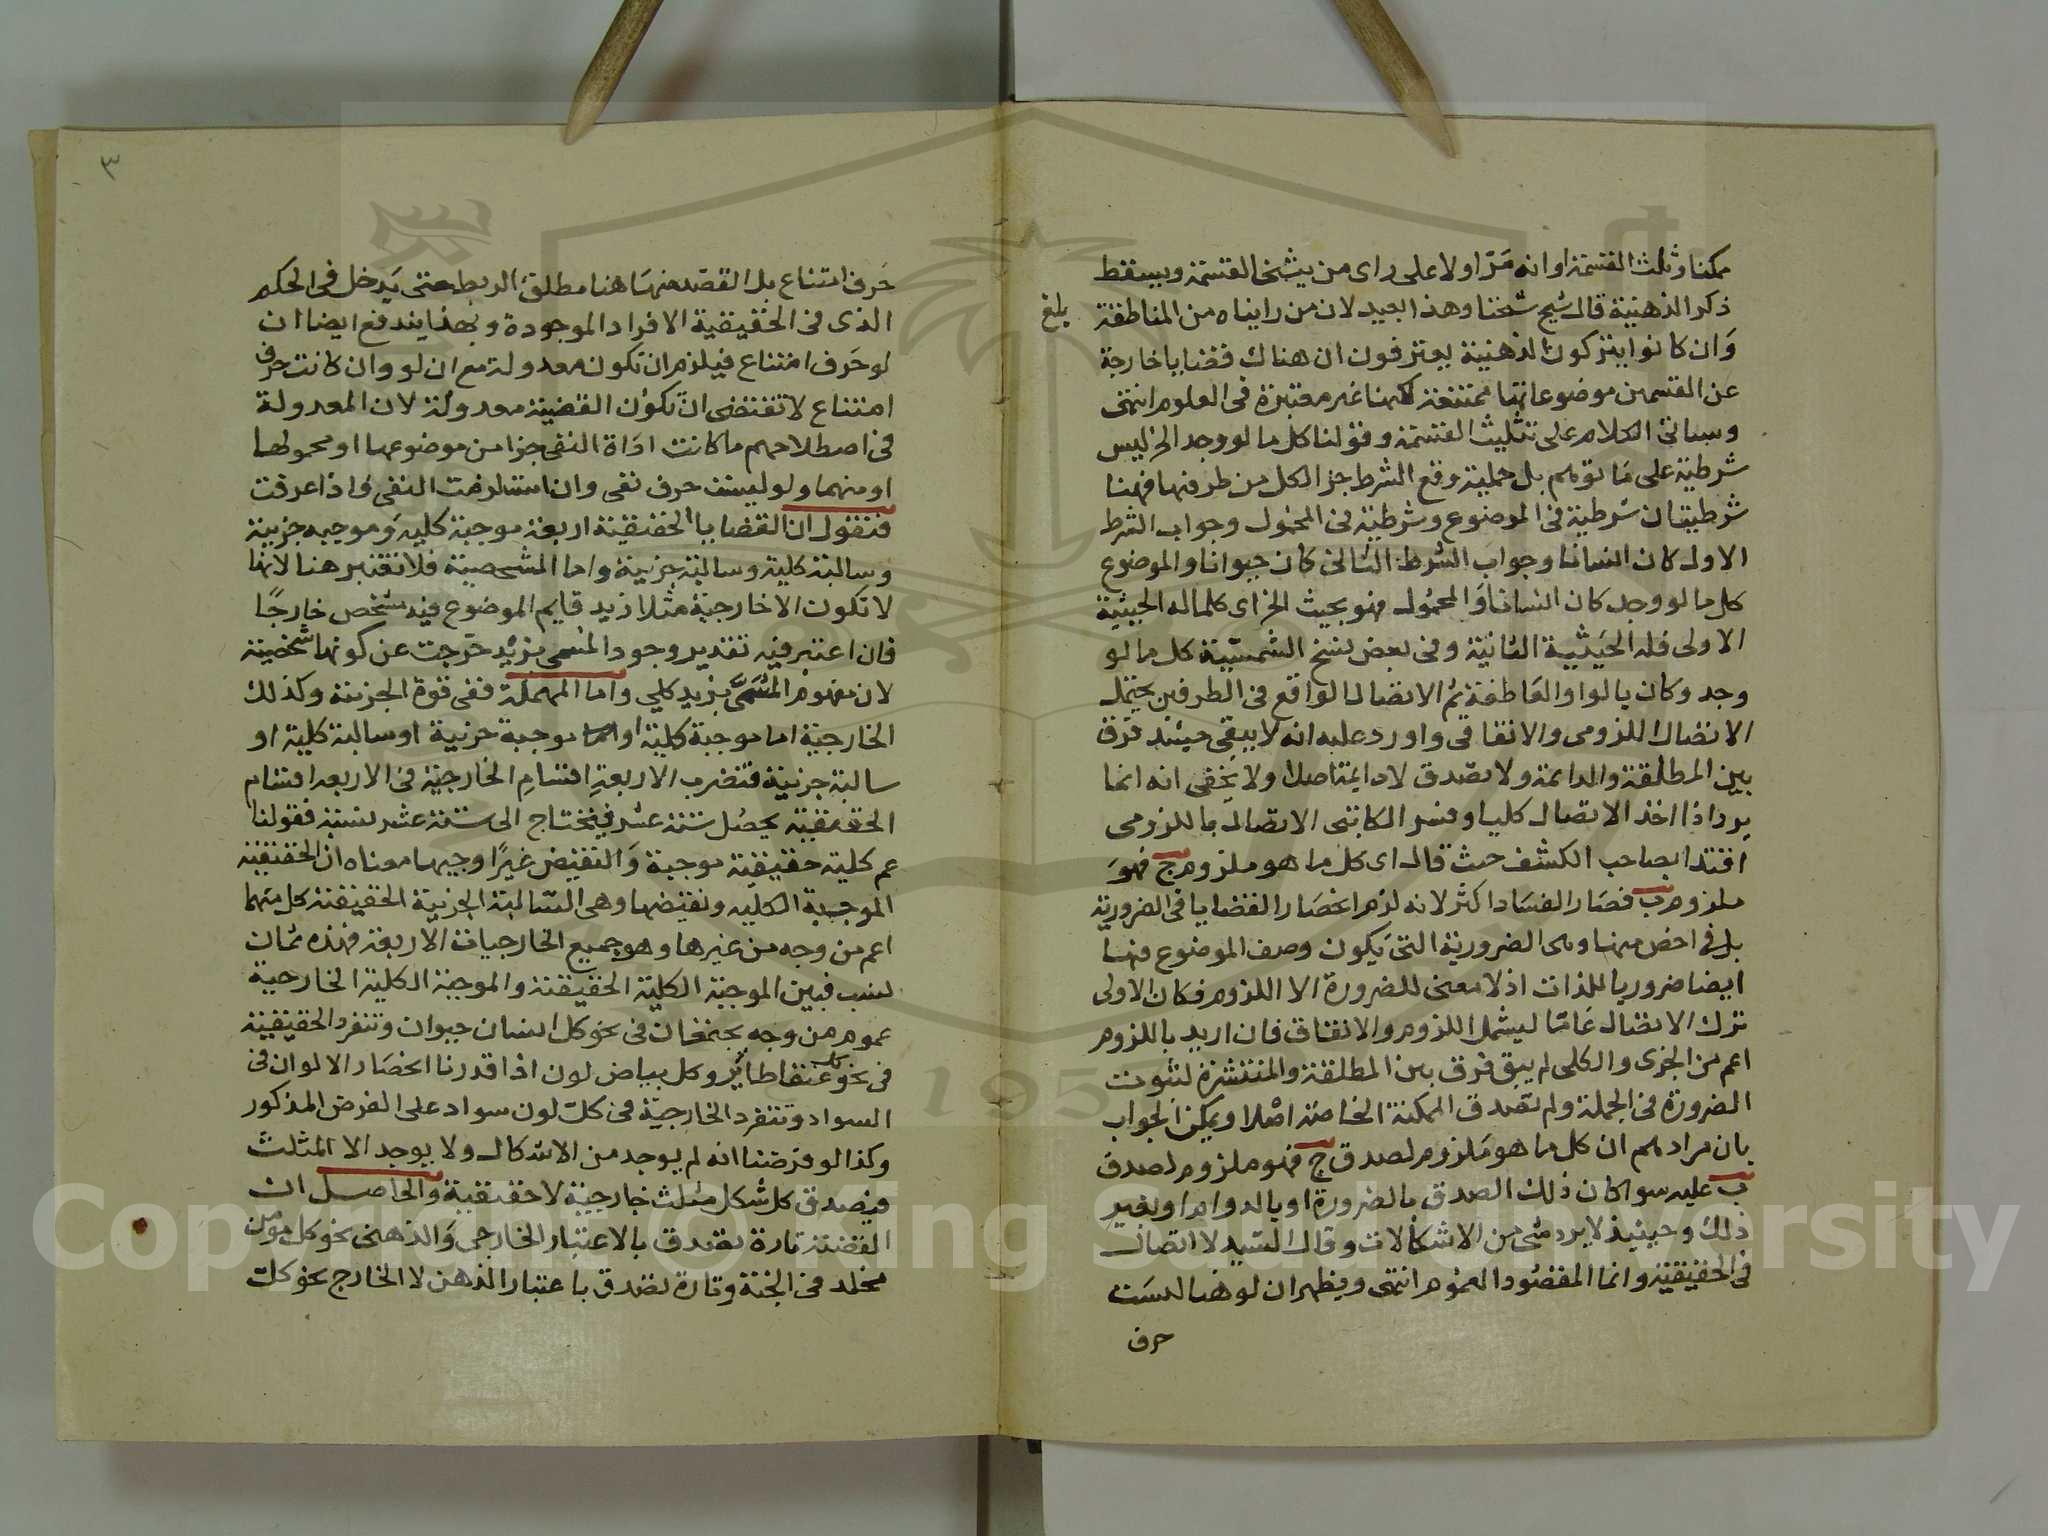 ممكنا وثلث القسمة او انه مر اولا على راى من يثنى القسمة ويسقط
ذكر الذهنية قال شيخ شيخنا وهذا البعيد لان من رايناه من المناطقة
بلغ
وان كانوا يتركون الذهنية يعترفون ان هناك قضايا خارجة
عن القسمين موضوعاتها ممتنعة لكنها غير معتبرة فى العلوم انتهى
وسياتى الكلام على تثليث القسمة وقولنا كل ما لو وجد الخ ليس
شرطية على ما توهم بل حملية وقع الشرط جزا لكل من طرفيها فهنا
شرطيتان شرطية فى الموضوع وشرطية فى المحمول وجواب الشرط
الاول كان انسانا وجواب الشرط الثانى كان حيوانا والموضوع
كل ما لو وجد كان انسانا والمحمول فهو بحيث الخ اى كلما له الحيثية
الاولى فله الحيثية الثانية وفى بعض نسخ الشمسية كل ما لو
وجد وكان بالواو العاطفة ثم الاتصال الواقع فى الطرفين يحتمل
الاتصال اللزومى والاتفاقى واورد عليه انه لا يبقى حينئذ فرق
بين المطلقة والدائمة ولا تصدق لادايمة اصلا ولا يخفى انه انما
يرد اذا اخذ الاتصال كليا وفسر الكاتبى الاتصال باللزومى
اقتدا بصاحب الكشف حيث قال اى كل ما هو ملزوم ج فهو
ملزوم ب فصار الفساد اكثر لانه لزم انحصار القضايا فى الضرورية
بل فى اخص منها وهى الضرورية التى يكون وصف الموضوع فيها
ايضا ضروريا للذات اذ لا معنى للضرورة الا اللزوم فكان الاولى
ترك الاتصال عاما ليشمل اللزوم والاتفاق فان اريد باللزوم
اعم من الجزى والكلى لم يبق فرق بين المطلقة والمنتشرة لثبوت
الضرورة فى الجملة ولم تصدق الممكنة الخاصة اصلا ويمكن الجواب
بان مرادهم ان كل ما هو ملزوم لصدق ج فهو ملزوم لصدق
ب عليه سوا كان ذلك الصدق بالضرورة او بالدوام او بغير
ذلك وحينيذ لا يرد شى من الاشكالات وقال السيد لا اتصال
فى الحقيقية وانما المقصود العموم انتهى ويظهر ان لو هنا ليست
حرف
٣
حرف امتناع بل القصد منها هنا مطلق الربط حتى يدخل فى الحكم
الذى فى الحقيقية الافراد الموجودة وبهذا يندفع ايضا ان
لو حرف امتناع فيلزم ان تكون معدولة مع ان لو وان كانت حرف
امتناع لا تقتضى ان تكون القضية معدولة لان المعدولة
فى اصطلاحهم ما كانت اداة النفى جزا من موضوعها او محمولها
او منهما ولو ليست حرف نفى وان استلزمت النفى واذا عرفت
فنقول ان القضايا الحقيقية اربعة موجبة كلية وموجبه جزيية
وسالبة كلية وسالبة جزيية واما الشخصية فلا تعتبر هنا لانها
لا تكون الا خارجية مثلا زيد قايم الموضوع فيه شخص خارجا
فان اعتبر فيه تقدير وجود المسمى بزيد خرجت عن كونها شخصية
لان مفهوم المسمى بزيد كلي واما المهملة ففى قوة الجزيية وكذلك
الخارجية اما موجبة كلية او موجبة جزيية او سالبة كلية او
سالبة جزيية فتضرب الاربعة اقسام الخارجية فى الاربعه اقسام
الحقيقية يحصل ستة عشر فيحتاج الى ستة عشر نسبة فقولنا
عم كلية حقيقية موجبة والنقيض غيرا وجيها معناه ان الحقيقية
الموجبة الكليه ونقيضها وهى السالبة الجزيية الحقيقية كل منهما
اعم من وجه من غيرها وهو جميع الخارجيات الاربعة فهذه ثمان
نسب فبين الموجبة الكلية الحقيقية والموجبة الكلية الخارجية
عموم من وجه يجتمعان فى نحو كل انسان حيوان وتنفرد الحقيقية
فى نحو كل عنقا طاير وكل بياض لون اذا قدرنا انحصار الالوان فى
السواد وتنفرد الخارجية فى كل لون سواد على الفرض المذكور
وكذا لو فرضنا انه لم يوجد من الاشكال ولا يوجد الا المثلث
فيصدق كل شكل مثلث خارجية لا حقيقية والحاصل ان
القضية تارة تصدق بالاعتبار الخارجى والذهنى نحو كل مومن
مخلد فى الجنة وتارة تصدق باعتبار الذهن لا الخارج نحو كل
Copyright © King Saud University